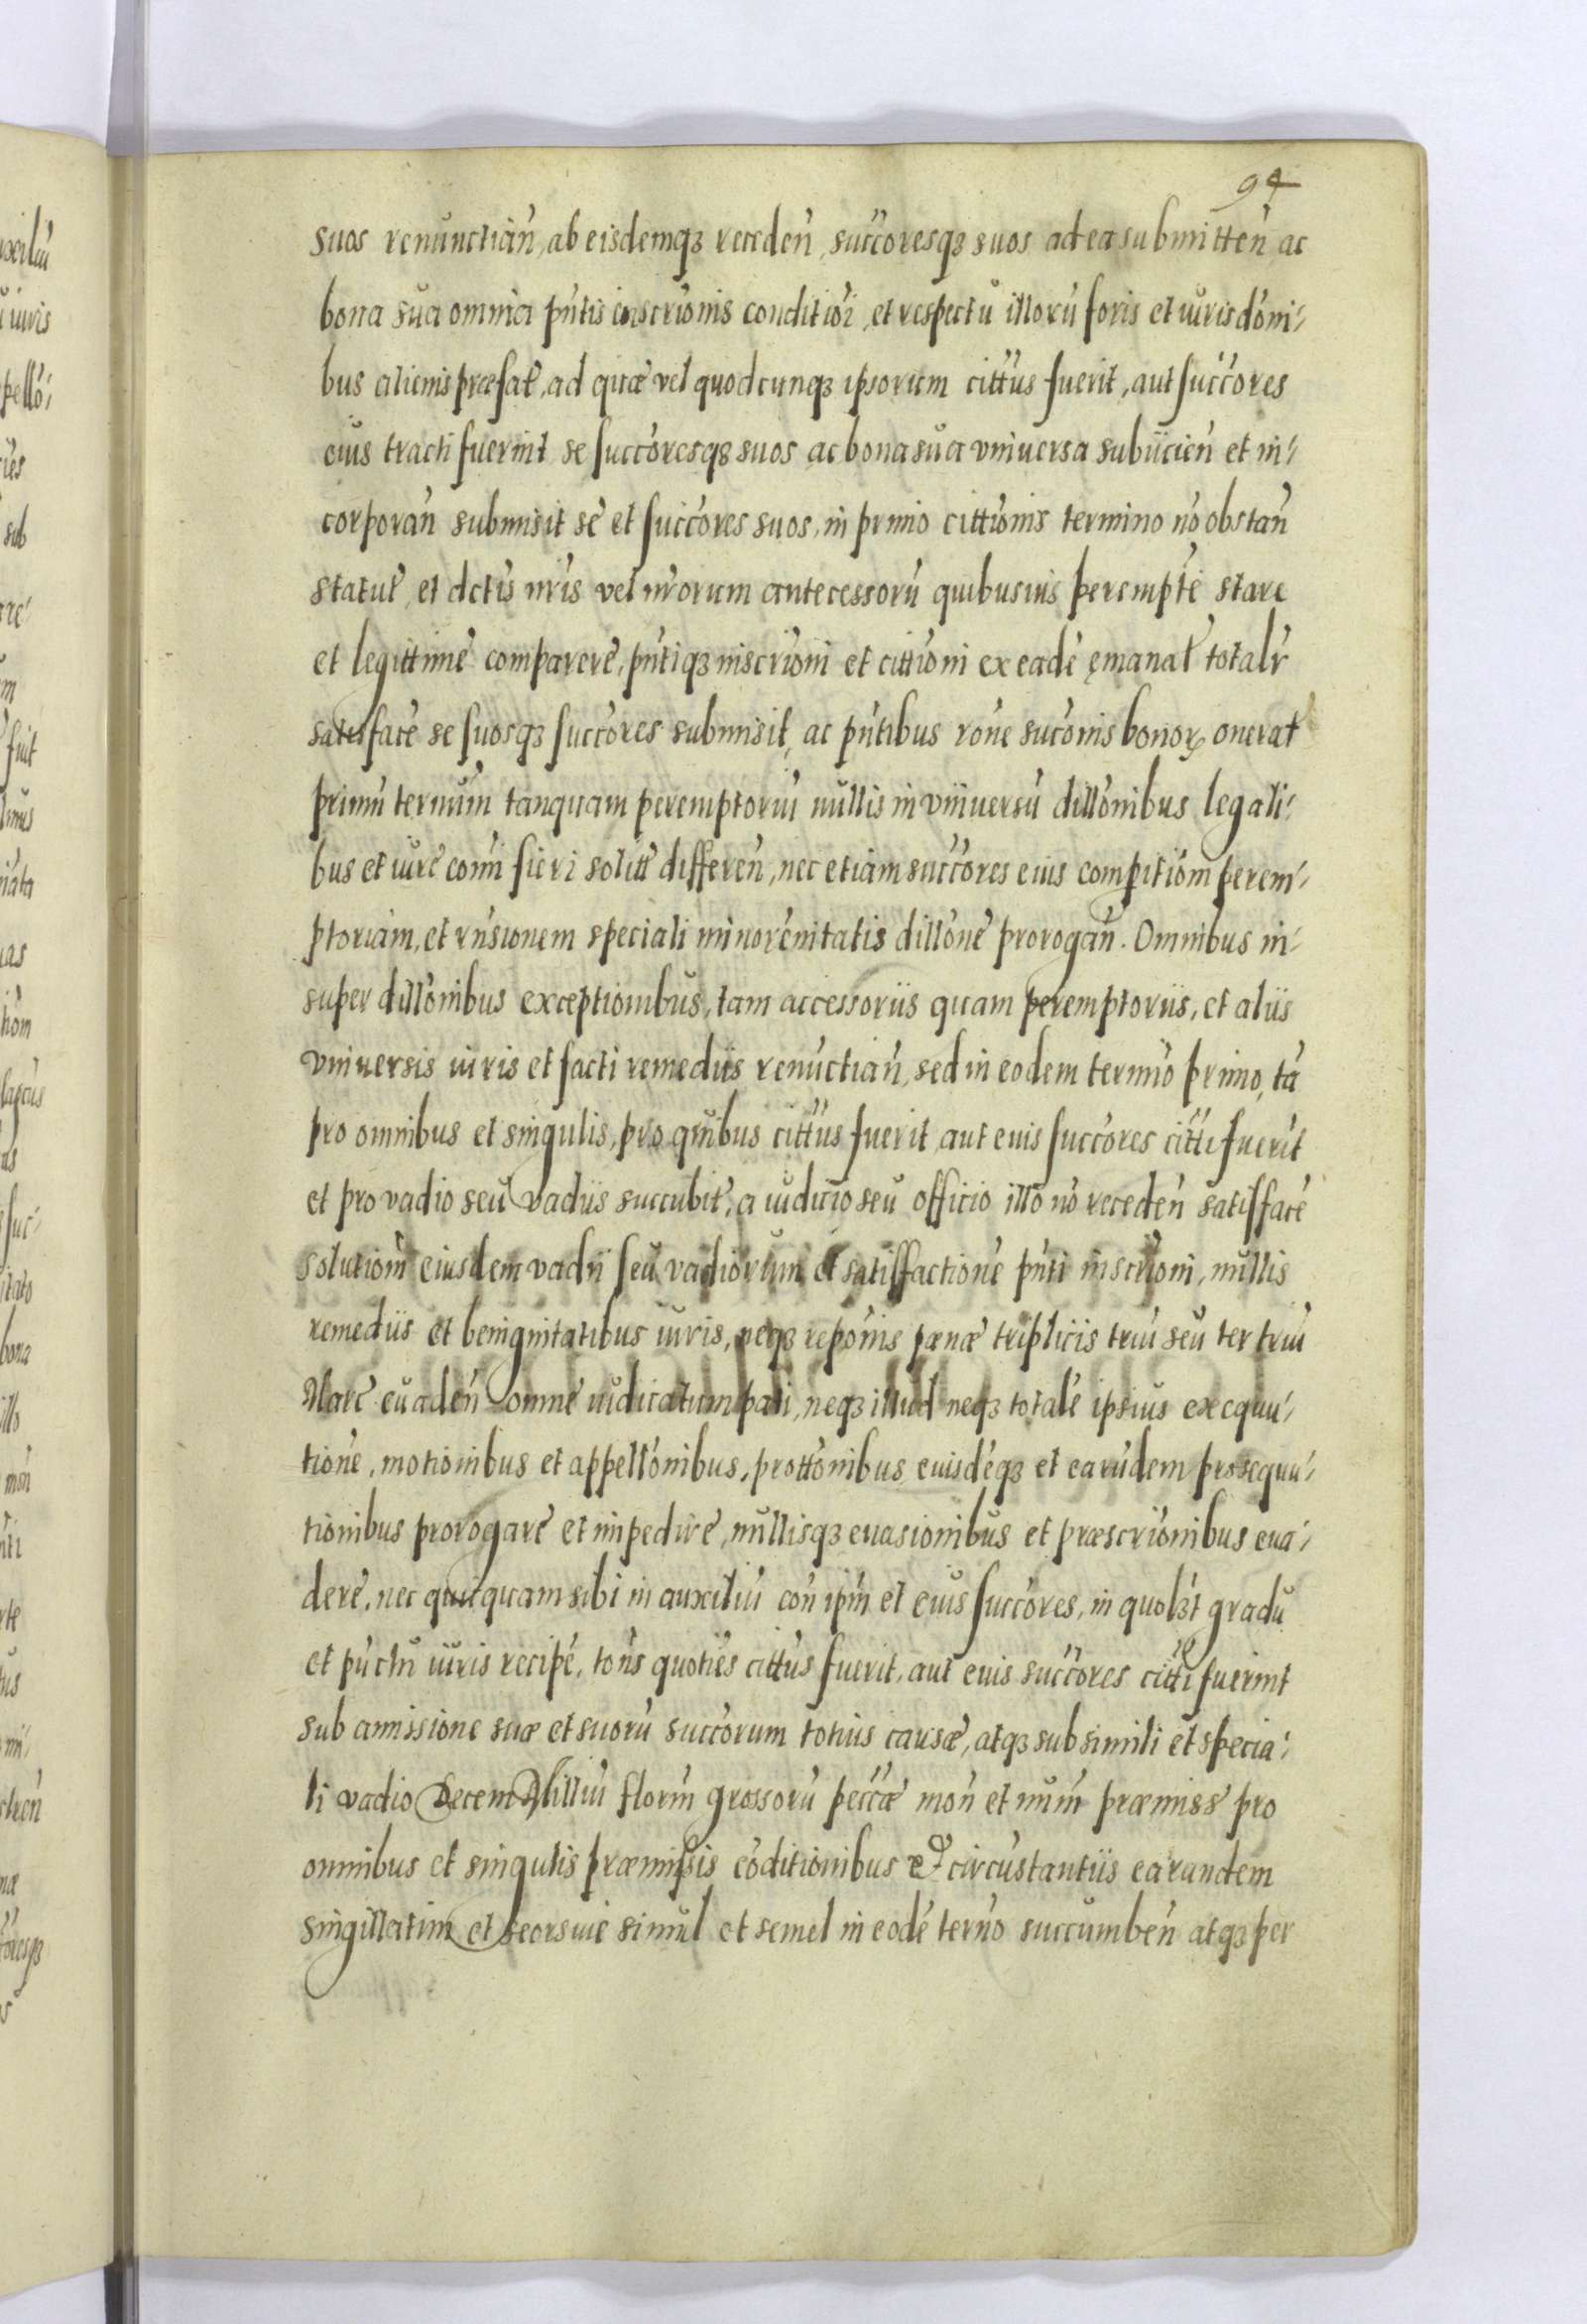 94
suos renunctian̄, ab eisdemqꝫ receden̄, succ̄oresqꝫ suos ad ea submitten̄ ac
bona sua omnia pn̄tis inscrīonis conditiōi, et respectu illorū foris et iurisdōni-
bus alienis præfat̄, ad quæ vel quodcunqꝫ ipsorum citt̄us fuerit, aut succ̄ores
eius tracti fuerint se succ̄oresqꝫ suos ac bona sua vniuersa subiicien̄ et in-
corporan̄ submisit se et succ̄ores suos, in primo citt̄ionis termino nō obstan̄
statut̄ et dctis nr̄is vel nr̄orum antecessorū quibusuis perempt̄e stare
et legittime comparere, pn̄tiqꝫ inscrīoni et citt̄ioni ex eadē ęmanat̄ totalr̄
satisfacē se suosqꝫ succ̄ores submisit, ac pn̄tibus rōne sucōnis bonoꝝ onerat̄
primū termūm tanquam peremptoriū nullis in vniuersū dill̄onibus legali-
bus et iure com̄i fieri solitt̄ differen̄, nec etiam succ̄ores eius comp̄itiōm perem-
ptoriam, et rn̄sionem speciali minorēnitatis dill̄one prorogan̄. Omnibus in-
super dill̄onibus exceptionibus, tam accessoriis quam peremptoriis, et aliis
vniuersis iuris et facti remediis renūctian̄, sed in eodem termīo primo, tā
pro omnibus et singulis, pro quibus citt̄us fuerit aut euis succ̄ores citt̄i fuerīt
et pro vadio seu vadiis succubit̄, a iudicio seu officio illo nō receden̄ satisfacē
solutiōm eiusdem vadii seu vadiorum et satisfactionē pn̄ti inscrīoni, nullis
remediis et benignitatibus iuris, neqꝫ repōnis pænæ triplicis triū seu ter triū
Marc̄ euaden̄ omne iudicatum pati, neqꝫ illud neqꝫ totalē ipsius exequu-
tionē, motionibus et appell̄onibus, prott̄onibus euisdēqꝫ et earūdem prosequu-
tionibus prorogare et impedire, nullisqꝫ euasionibus et præscrīonibus eua-
dere, nec quicquam sibi in auxiliū con̄ ip̄m et eius succ̄ores, in quolꝫt gradu
et pūctu iuris recipē, tōns quotiēs citt̄us fuerit, aut euis succ̄ores citt̄i fuerint
sub amissione suæ et suorū succ̄orum totius causæ, atqꝫ sub simili et specia-
li vadio Decem Milliū florn̄ grossorū pecc̄æ mon̄ et num̄ præmiss̄ pro
omnibus et singulis præmissis cōditionibus et circūstantiis earundem
singillatim et seorsiuē simul et semel in eodē termō succumben̄ atqꝫ per